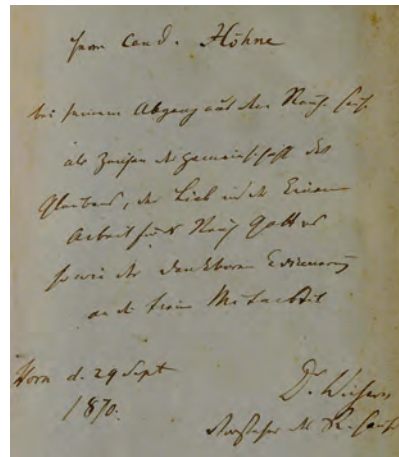 Herrn Cand. Höhne
bei seinem Abgang aus dem Rauh. Hause
als Zeichen der Gemeinschaft des
Glaubens, der Liebe und der Einen
Arbeit für's Reich Gottes
sowie der dankbaren Erinnerung
an die treue Mitarbeit
Horn d. 29 Sept
1870.
Dr. Wichern
Vorsteher des R. Hauses